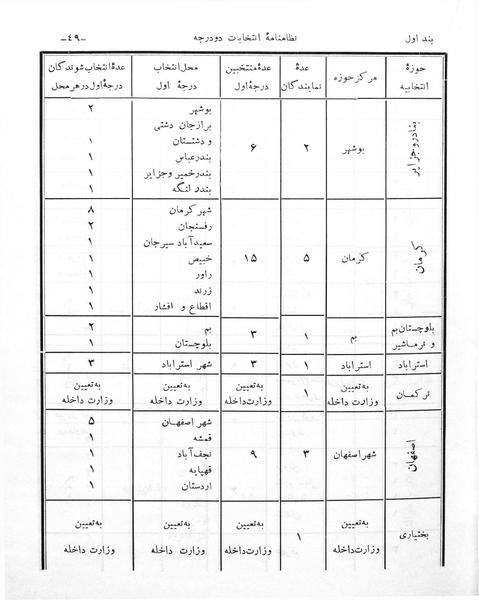 بند اول نظامنامهٔ انتخابات دودرجه -٤٩-
حوزهٔ انتخابیه مرکزحوزه عدهٔ نمایندگان عدهٔ منتخبین درجهٔ اول محل انتخاب درجهٔ اول عدهٔ انتخاب شوندگان درجهٔ اول درهر محل
بنادر و جزایر بوشهر ۲ ۶
بوشهر ۲
برازجان دشتی
و دشتستان ۱
بندرعباس ۱
بندرخمیر وجزایر ۱
بندر لنگه ۱
کرمان کرمان ۵ ۱۵
شهر کرمان ۸
رفسنجان ۲
سعیدآباد سیرجان ۱
خبیص ۱
راور ۱
زرند ۱
اقطاع و افشار ۱
بلوچستان بم و نرماشیر بم ۱ ۳
بم ۲
بلوچستان ۱
استراباد استراباد ۱ ۳ شهر استراباد ۳
ترکمان به تعیین وزارت داخله ۱ به تعیین وزارت داخله به تعیین وزارت داخله به تعیین وزارت داخله
اصفهان شهر اصفهان ۳ ۹
شهر اصفهان ۵
قمشه ۱
نجف آباد ۱
قهپایه ۱
اردستان ۱
بختیاری به تعیین وزارت داخله ۱ به تعیین وزارت داخله به تعیین وزارت داخله به تعیین وزارت داخله